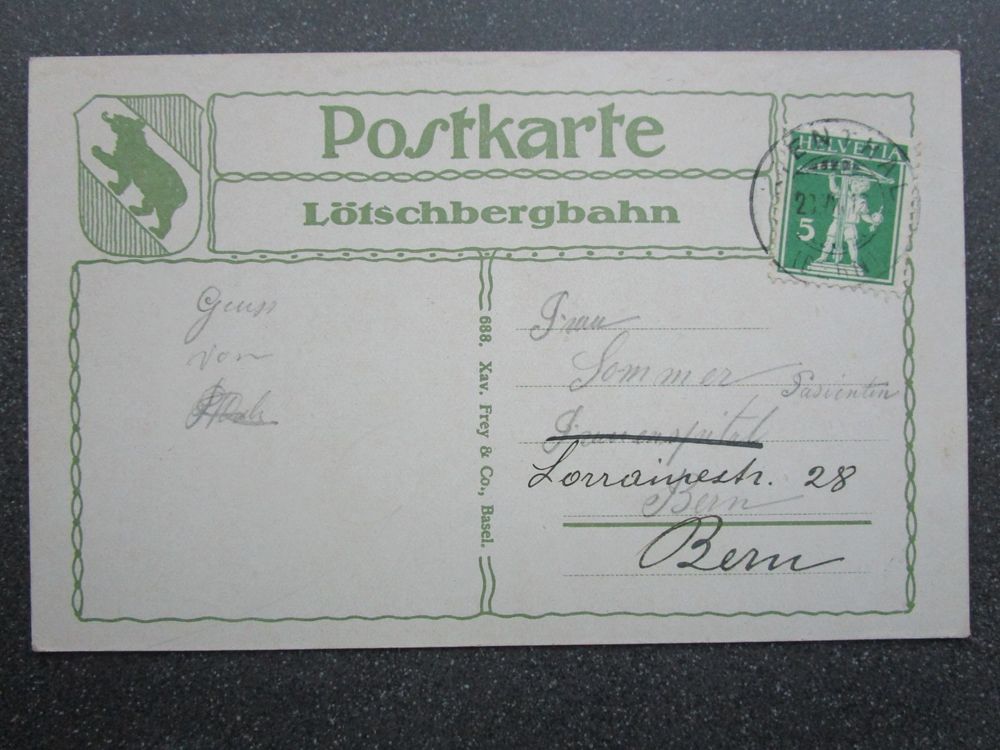 Postkarte
Lötschbergbahn
HELVETIA
5
Gruss
von
688. Xav. Frey & Co., Basel.
Frau
Sommer Pasientin
Frauenspital
Lorrainestr. 28
Bern
Bern